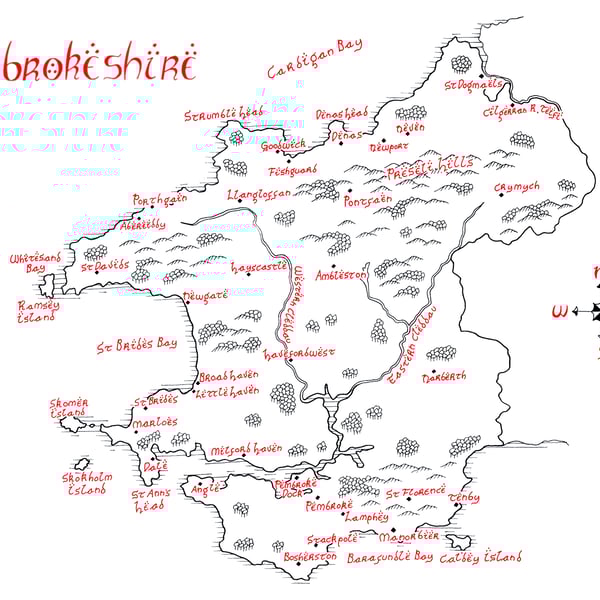 brokeshire
Cardigan Bay
St Dogmaels
Cilgerran
R. Teifi
Strumble head
Dinas head
Dinas
Goodwick
Fishguard
Newport
Neven
Preseli hills
Crymych
Porthgain
Llangloffan
Pontfaen
Abereiddy
Whitesand
Bay
St Davids
Hayscastle
Ambleston
Western Cleddau
Eastern Cleddau
Ramsey
Island
Newgale
W
St Brides Bay
Havefordwest
Broad haven
Little haven
Narberth
Skomer
Island
St Brides
Marloes
Skokholm
Island
Dale
Milford haven
St Anns
head
Angle
Pembroke
Dock
Pembroke
St Florence
Tenby
Lamphey
Stackpole
Manorbier
Bosherston
Barafundle Bay
Caldey Island